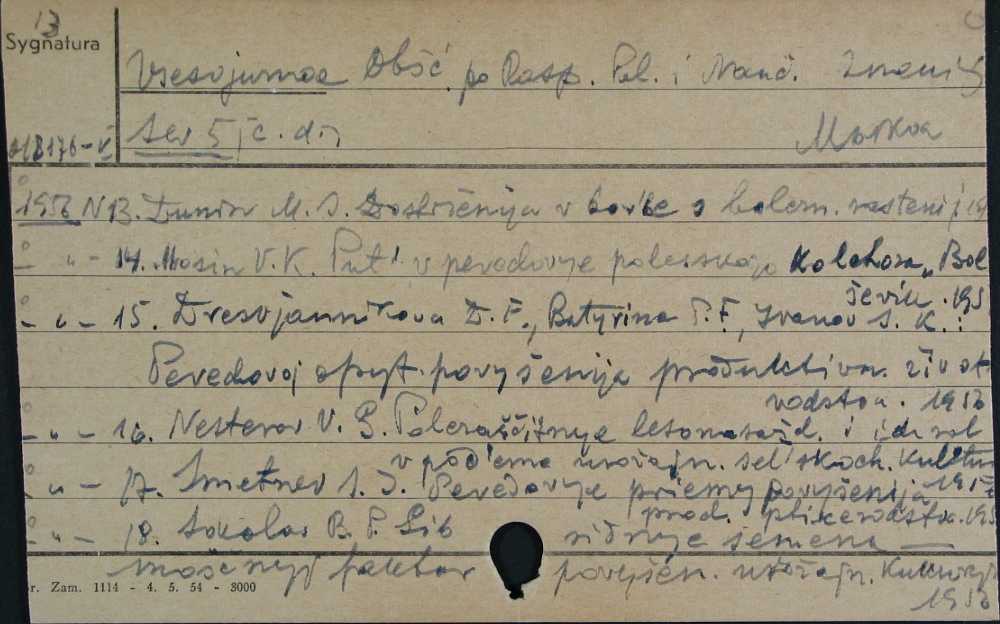 13
Sygnatura
Vsesojuznoe Obšč. po Rasp. Pol. i Nauč. Znanij
Ser 5 (c. d.) Moskva
1956 N 13. Dunin M. S. Dostiženija v bor'be s bolezn. rastenij
- " - 14. Mosin V. K. Put' v peredovye polesskogo kolchoza "Bol
ševik. 195
- " - 15. Drevjannikova D. F., Batyrina T. F., Ivanov S. K.:
Peredovoj opyt povyšenija produktivn. život
vodstva. 1956
- " - 16. Nesterov V. G. Polezaščitnye lesonasažd. i ich rol
v pod'eme urožajn. sel'skoch. kultur
- " - 17. Smetnev S. I. Peredovye priemy povyšenija 195
prod. pticevodstva. 195
- " - 18. Sokolov B. P. Gib ridnye semena —
moščnyj faktor povyšen. urožajn. Kukuruzy
1956
r. Zam. 1114 - 4. 5. 54 - 3000